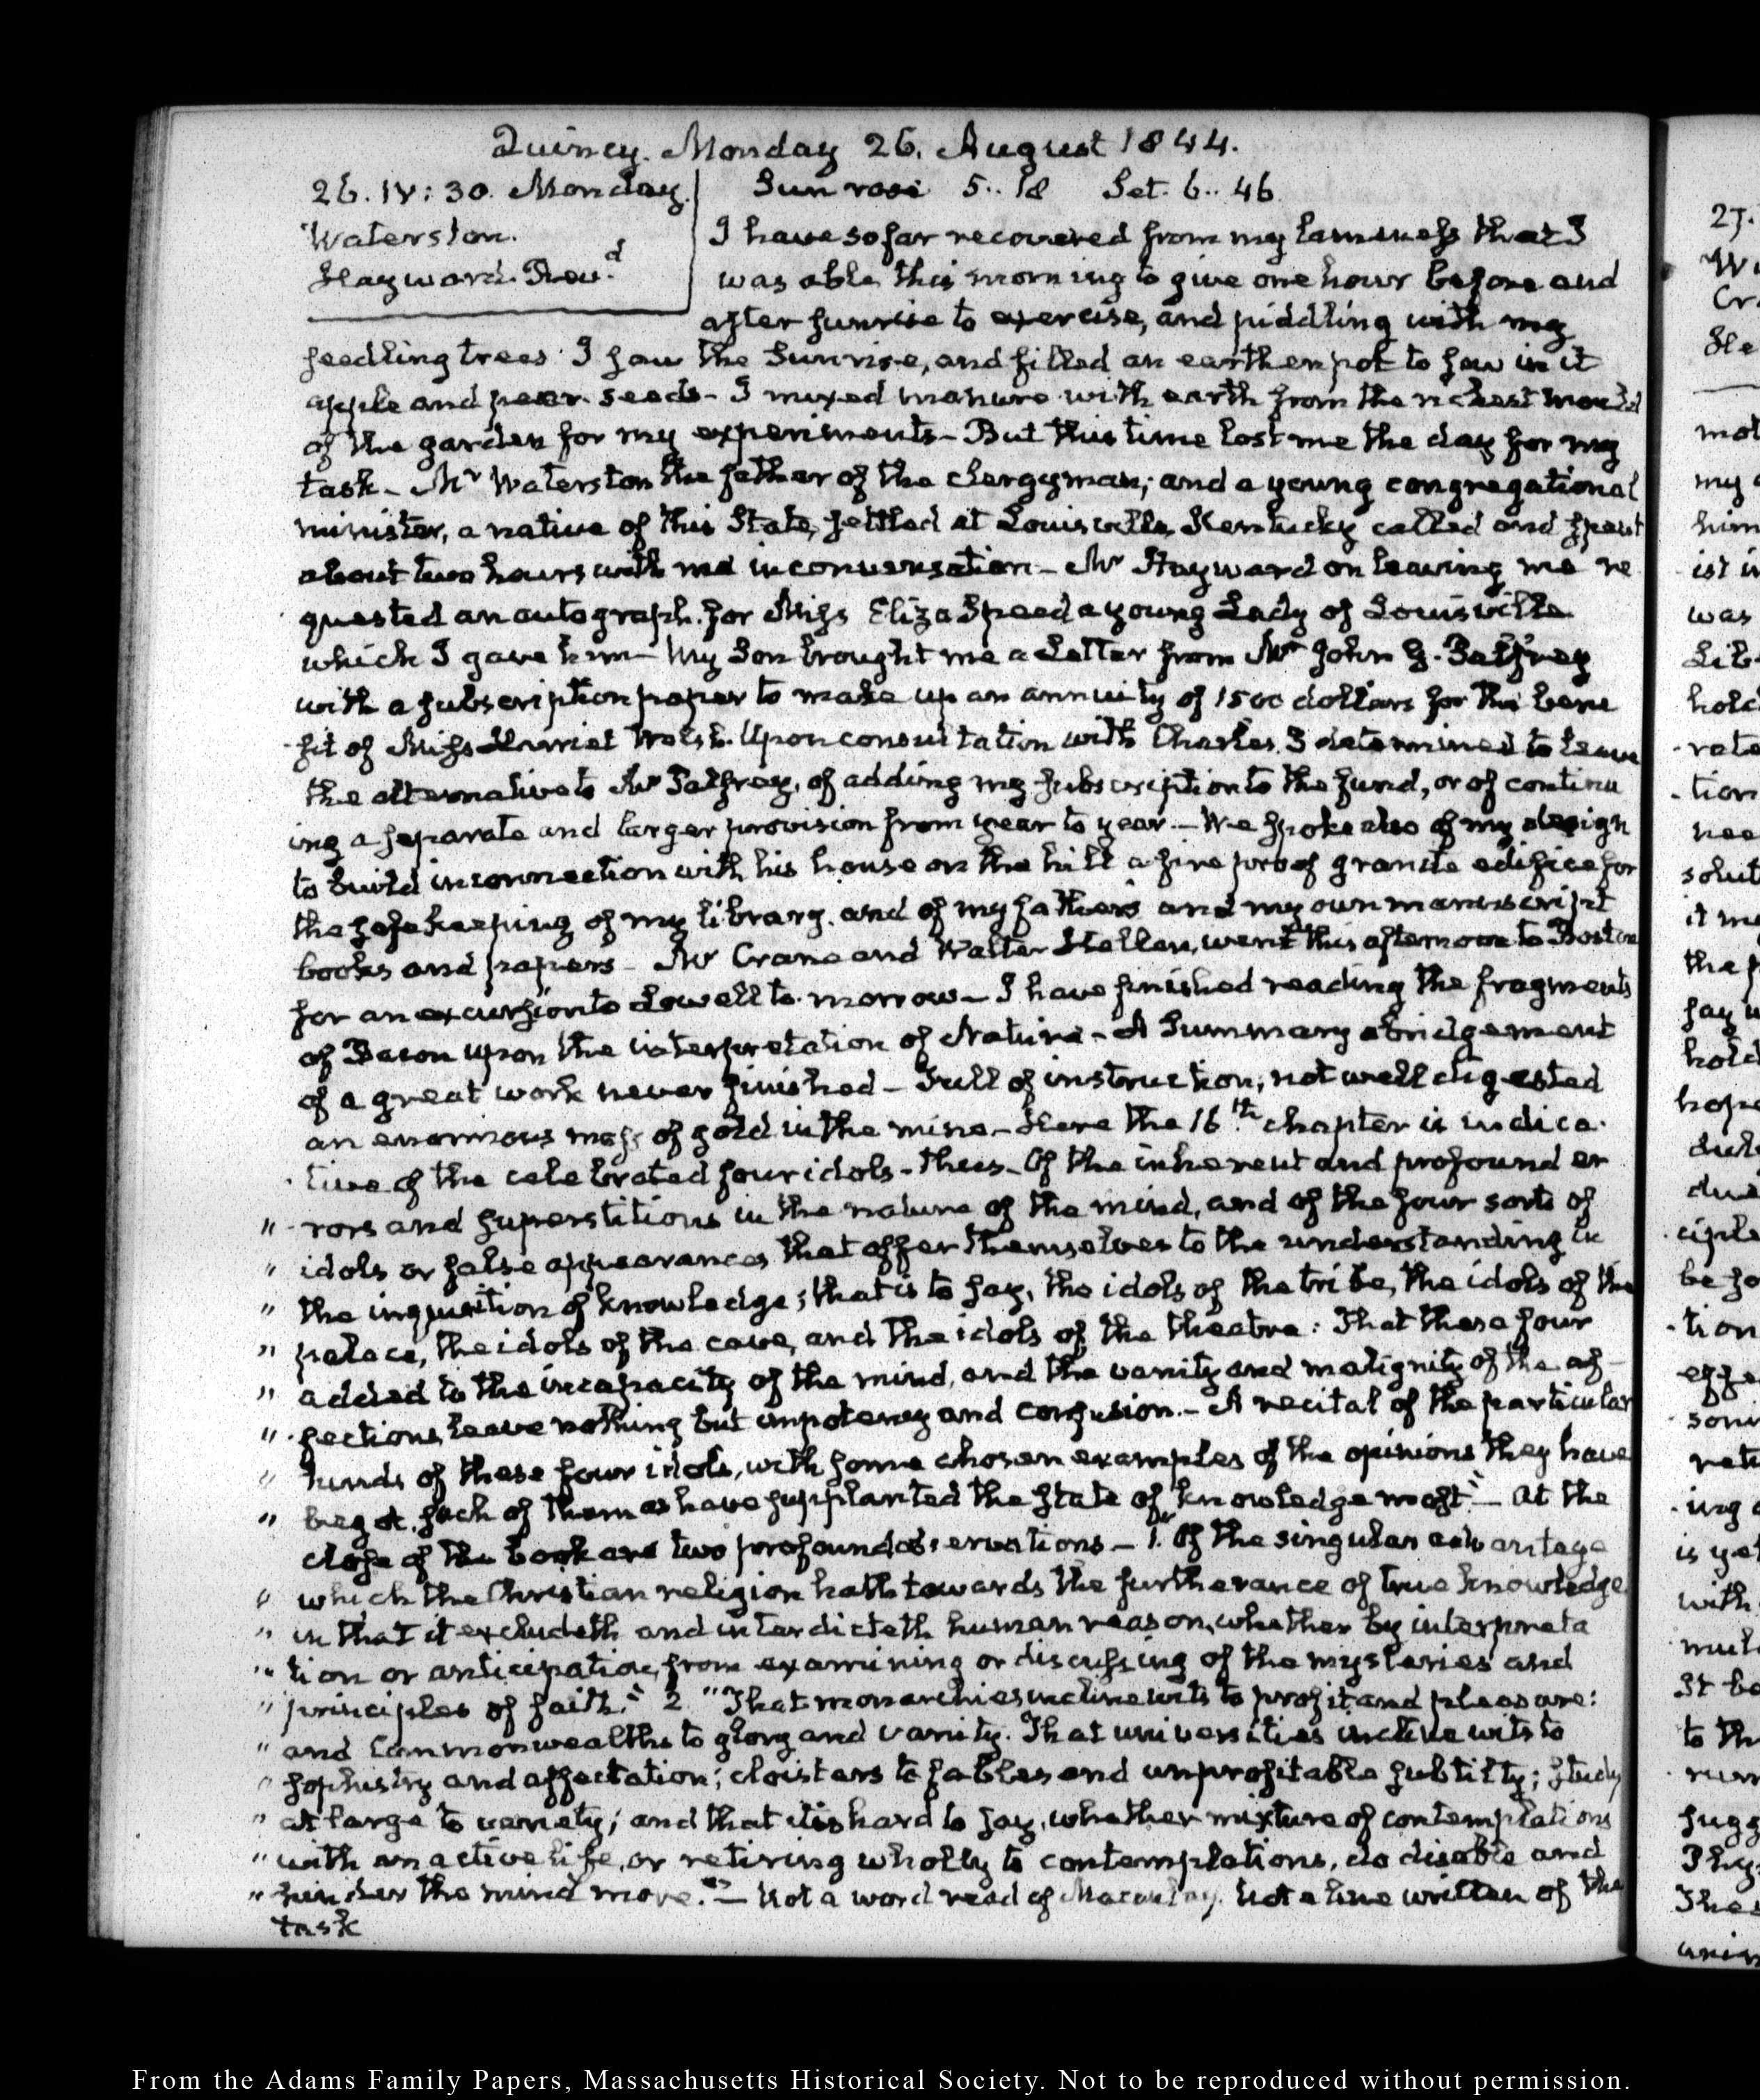 Quincy. Monday 26. August 1844.
26. IV: 30. Monday.
Waterston.
Hayward. Revd
Sun rose 5.. 18 Set. 6.. 46
I have so far recovered from my lameness that I
was able this morning to give one hour before and
after sunrise to exercise, and piddling with my
seedling trees I saw the Sunrise, and filled an earthen pot to sow in it
apple and pear seeds - I mixed manure with earth from the richest mould
of the garden for my experiments - But this time lost me the day for my
task - Mr Waterston the father of the clergyman; and a young congregational
minister, a native of this State, settled at Louisville, Kentucky called and spent
about two hours with me in conversation - Mr Hayward on leaving me re
quested an autograph for Miss Eliza Speed a young Lady of Louisville
which I gave him - My Son brought me a Letter from Mr John G. Palfrey
with a subscription paper to make up an annuity of 1500 dollars for the bene
fit of Miss Harriet Welsh. Upon consultation with Charles, I determined to leave
the alternative to Mr Palfrey, of adding my subscription to the fund, or of continu
ing a separate and larger provision from year to year. - We spoke also of my design
to build in connection with his house on the hill a fire proof granite edifice for
the safe keeping of my library. and of my father's and my own manuscript
books and papers - Mr Crane and Walter Hellen, went this afternoon to Boston
for an excursion to Lowell to-morrow - I have finished reading the fragments
of Bacon upon the interpretation of Nature - A Summary abridgement
of a great work never finished - Full of instruction; not well digested
an enormous mass of gold in the mine - Here the 16th. chapter is indica-
tive of the celebrated four idols - thus - Of the inherent and profound er
" rors and superstitions in the nature of the mind, and of the four sorts of
" idols or false appearances that offer themselves to the understanding in
" the inquisition of knowledge; that is to say, the idols of the tribe, the idols of the
" palace, the idols of the cave, and the idols of the theatre: That these four
" added to the incapacity of the mind, and the vanity and malignity of the af-
" fections, leave nothing but impotency and confusion. - A recital of the particular
" kinds of these four idols, with some chosen examples of the opinions they have
" begot, such of them as have supplanted the state of knowledge most" - At the
close of the book are two profound observations - 1. "Of the singular advantage
" which the Christian religion hath towards the furtherance of true knowledge
" in that it excludeth and interdicteth human reason, whether by interpreta
" tion or anticipation, from examining or discussing of the mysteries and
" principles of faith." 2. "That monarchies incline wits to profit and pleasure:
" and Commonwealths to glory and vanity. That universities incline wits to
" sophistry and affectation; cloisters to fables and unprofitable subtilty; study
" at large to variety; and that it is hard to say, whether mixture of contemplations
" with an active life, or retiring wholly to contemplations, do disable and
" hinder the mind more." - Not a word read of Macaulay. Not a line written of the
task
From the Adams Family Papers, Massachusetts Historical Society. Not to be reproduced without permission.